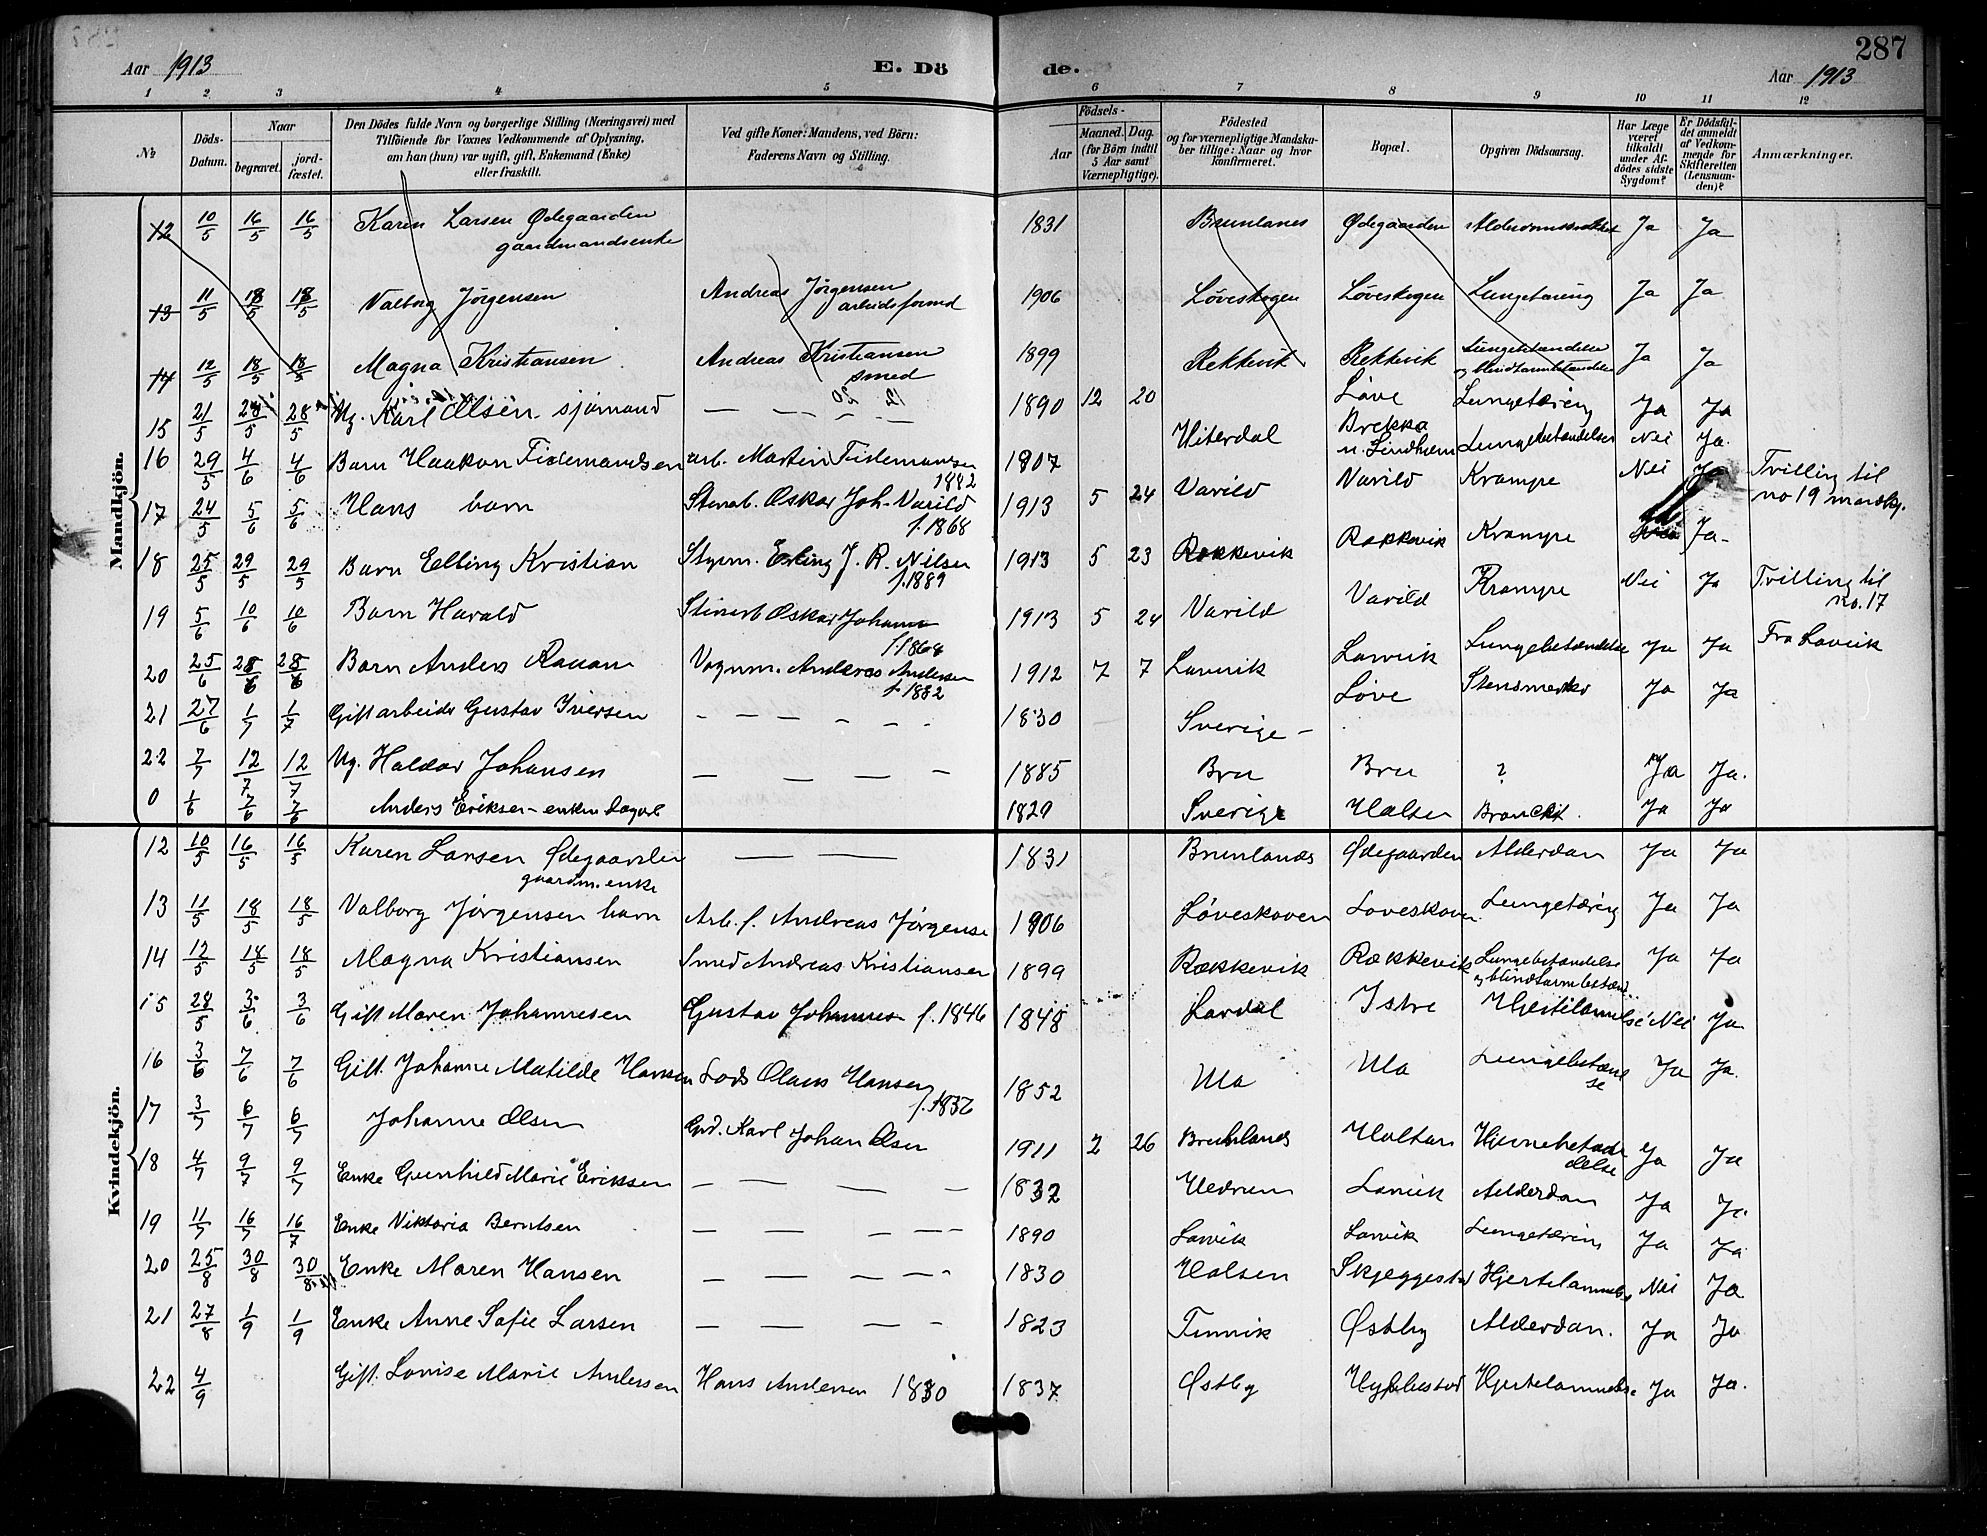 287
Aar 1913 E. Dö de. Aar 1913
1 2. 3 4 5 6 7 8 9 10 11 12
№ Döds-Datum. Naar begravet. jord-fæstet. Den Dödes fulde Navn og borgerlige Stilling (Næringsvei) med Tilföiende for Voxnes Vedkommende af Oplysning, om han (hun) var ugift, gift, Enkemand (Enke) eller fraskilt. Ved gifte Koner: Mandens, ved Börn: Faderens Navn og Stilling. Födsels- Aar Maaned. Dag. (for Börn indtil 5 Aar samt Værnepligtige). Födested og for værnepligtige Mandskaber tillige: Naar og hvor konfirmeret. Bopæl. Opgiven Dödsaarsag. Har Læge været tilkaldt under Afdödes sidste Sygdom? Er Dödsfaldet anmeldt af Vedkommende for Skifteretten (Lensmanden)? Anmærkninger.
Mandkjön.
12 10/5 16/5 16/5 Karen Larsen Ødegaarden 1831 Brunlanes Ødegaarden Ja Ja
gaardmandsenke
13 11/5 18/5 18/5 Valborg Jörgensen Andreas Jörgensen 1906 Löveskogen Löveskogen Lungetæring Ja Ja
arbeidsformd
14 12/5 18/5 18/5 Magna Kristiansen Andreas Kristiansen 1899 Rekkevik Rekkevik Lungebetændelse Ja Ja
smed og blindtarmbetændelse
15 21/5 28/5 28/5 Ug. Karl Olsen sjömand — — — — 1890 12 20 Löve Lungetæring Ja Ja
16 29/5 4/6 4/6 Barn Haakon Fidemandsen arb. Martin Fidemansen 1882 1807 Hiterdal Brekka n. Lindholm Lungebetændelse Nei Ja.
17 24/5 5/6 5/6 Hans barn Stenarb. Oskar Joh. Varild f. 1868 1913 5 24 Varild Varild Krampe Nei Ja Tvilling til no 19
18 25/5 29/5 29/5 Barn Elling Kristian Styrm. Erling J. R. Nilsen f. 1889 1913 5 23 Rekkevik Rakkevik Krampe Ja
19 5/6 10/6 10/6 Barn Harald Stenarb Oskar Johann f. 1868 1913 5 24 Varild Varild Krampe Nei Ja Tvilling til no. 17
20 25/6 28/6 28/6 Barn Anders Vognm. Anderas Andersen f. 1882 1912 7 7 Larvik Larvik Lungebetændelse Ja Ja Fra Larvik
21 27/6 1/7 1/7 Gift arbeider Gustav Iversen — — — — — — 1830 Sverige — Löve Ja Ja
22 7/7 12/7 12/7 Ug. Haldor Johansen — — — — 1885 Bru Bru ? Ja Ja.
0 1/6 7/6 7/6 Anders Eriksen — enkem 1829 Sverige Halsen Bronchit. Ja Ja
Kvindekjön.
12 10/5 16/5 16/5 Karen Larsen Ødegaarden — — 1831 Brunlanes Ødegaarden Alderdom Ja Ja
gaardm. enke
13 11/5 18/5 18/5 Valborg Jörgensen barn Arb. f. Andreas Jörgense 1906 Löveskoven Loveskoven Lungetæring Ja Ja
14 12/5 18/5 18/5 Magna Kristiansen Smed Andreas Kristiansen 1899 Rækkevik Rækkevik Lungebetændelse Ja Ja
og blindtarmbetænd.
15 28/5 3/6 3/6 Gift Maren Johannesen Gustav Johannes f. 1846 1848 Lardal Istre Hjertelammelse Nei Ja
16 3/6 7/6 7/6 Gift. Johanne Matilde Hansen Lods Olaus Hansen f. 1832 1852 Ula Ula Lungebetændelse Ja Ja.
17 3/7 6/7 6/7 Johanne Olsen Grd. Karl Johan Olsen 1911 2 26 Brunlanes Holtan Hjernebetændelse Ja Ja
18 4/7 9/7 9/7 Enke Gunhild Marie Eriksen — — — — 1832 Hedrum Larvik Alderdom Ja Ja.
19 11/7 16/7 16/7 Enke Viktoria Berntsen — — — — 1890 Larvik Larvik Lungetæring Ja Ja
20 25/8 30/8 30/8 Enke Maren Hansen — — — — — 1830 Halsen Skjeggestad Hjertelammels Nei Ja
21 27/8 1/9 1/9 Enke Anne Sofie Larsen — — — — 1823 Tinvik Østby Alderdom. Ja Ja
22 4/9 Gift. Lovise Marie Andersen Hans Andersen 1830 1837 Østby Hybbestad Hjertelammelse Ja Ja.